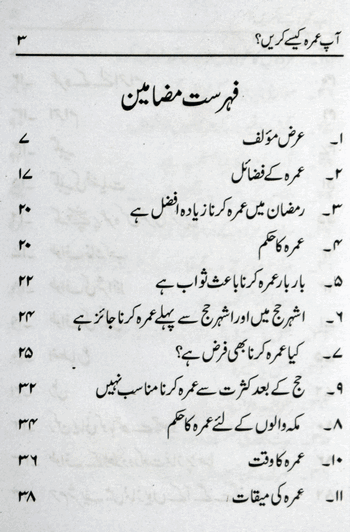 آپ عمرہ کیسے کریں؟ ۳
فہرست مضامین
۱۔ عرض مؤلف ۷
۲۔ عمرہ کے فضائل ۱۷
۳۔ رمضان میں عمرہ کرنا زیادہ افضل ہے ۲۰
۴۔ عمرہ کا حکم ۲۰
۵۔ بار بار عمرہ کرنا باعث ثواب ہے ۲۲
۶۔ اشہر حج میں اور اشہر حج سے پہلے عمرہ کرنا جائز ہے ۲۴
۷۔ کیا عمرہ کرنا بھی فرض ہے؟ ۲۵
۹۔ حج کے بعد کثرت سے عمرہ کرنا مناسب نہیں ۳۲
۸۔ مکہ والوں کے لئے عمرہ کا حکم ۳۴
۱۰۔ عمرہ کا وقت ۳۶
۱۱۔ عمرہ کی میقات ۳۸